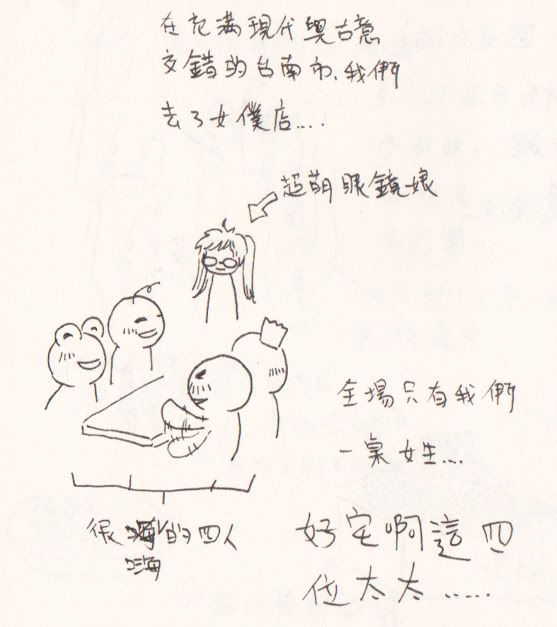 在充滿現代與古意
交錯的台南市,我們
去了女僕店....
超萌眼鏡娘
全場只有我們
一桌女生...
很嗨的四人
嗨
好宅啊這四
位太太.....